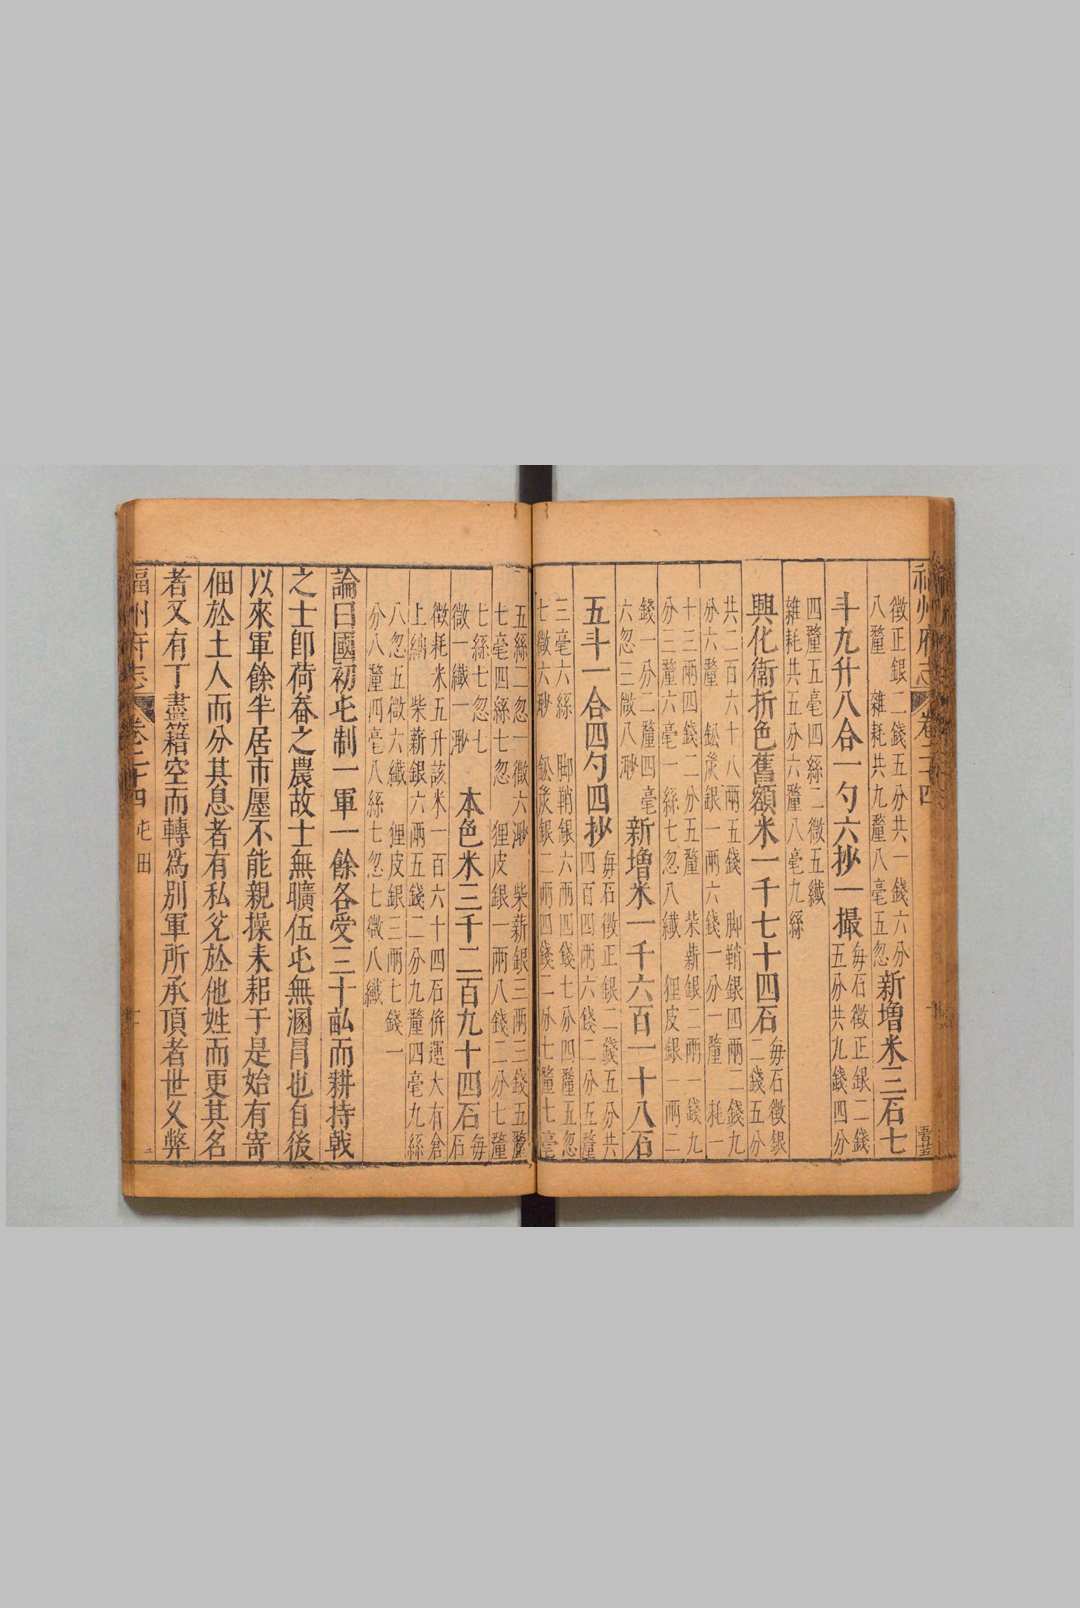 福州府志 卷二十四
徵正銀二錢五分共一錢六分
八釐 雜耗共九釐八毫五忽
新增米三石七
斗九升八合一勺六抄一撮
每石徵正銀二錢
五分共九錢四分
四釐五毫四絲二微五纖
雜耗共五分六釐八毫九絲
興化衛折色舊額米一千七十四石
每石徵銀
二錢五分
共二百六十八兩五錢 脚鞘銀四兩二錢九
分六釐 鉛炭銀一兩六錢一分一釐 耗一
十三兩四錢二分五釐 柴薪銀二兩一錢九
分三釐六毫一絲七忽八纖 狸皮銀一兩二
錢一分二釐四毫
六忽三微八渺
新增米一千六百一十八石
五斗一合四勺四抄
每石徵正銀二錢五分共
四百四兩六錢二分五釐
三毫六絲 脚鞘銀六兩四錢七分四釐五忽
七微六渺 鉛炭銀二兩四錢二分七釐七毫
五絲二忽一微六渺 柴薪銀三兩三錢五釐
七毫四絲七忽 狸皮銀一兩八錢二分七釐
七絲七忽七
微一纖一渺
本色米三千二百九十四石
每
石
徵耗米五升該米一百六十四石併運大有倉
上納 柴薪銀六兩五錢二分九釐四毫九絲
八忽五微六纖 狸皮銀三兩七錢一
分八釐四毫八絲七忽七微八纖
論曰國初屯制一軍一餘各受三十畝而耕持戟
之士卽荷畚之農故士無曠伍屯無溷冐也自後
以來軍餘半居市廛不能親操耒耜于是始有寄
佃於土人而分其息者有私兌於他姓而更其名
者又有丁盡籍空而轉爲别軍所承頂者世乆弊
福州府志 卷二十四 屯田